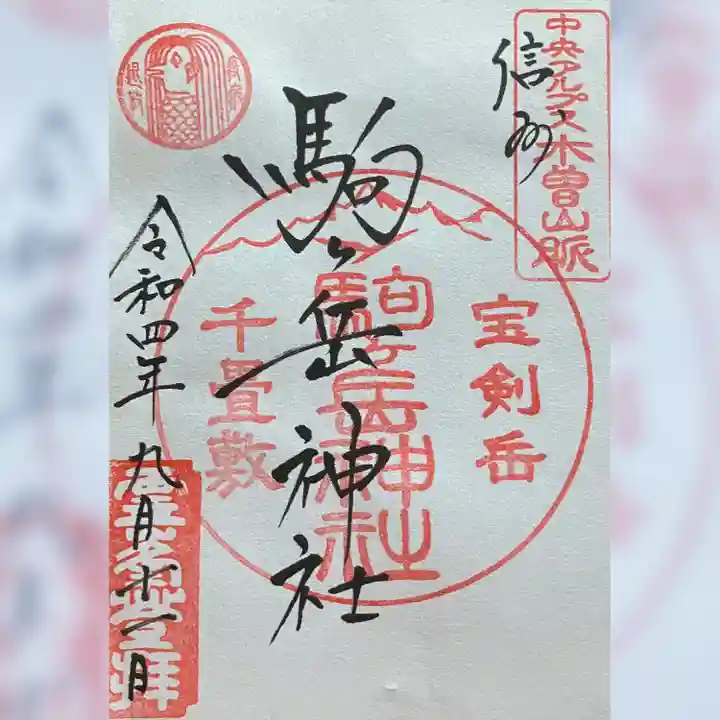 中央アルプス木曽山脈
信州
宝剣岳
駒ヶ岳神社
駒ヶ岳神社
千畳敷
令和四年九月十一日